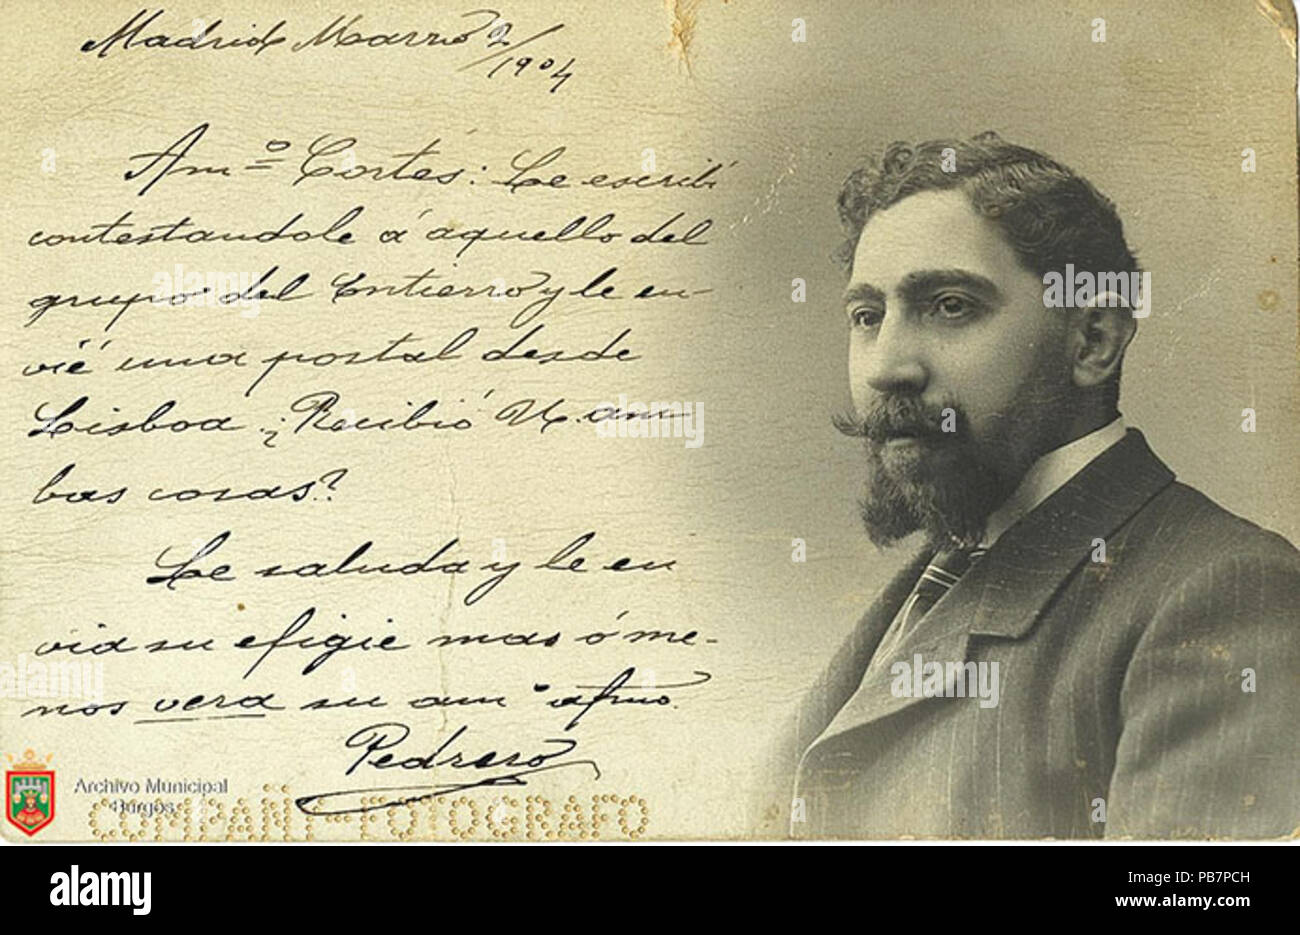 Madrid Marzo 2/1904
Am.º Cortés: Le escribí
contestandole á aquello del
grupo del Entierro y le en-
vié una postal desde
Lisboa. ¿Recibió V. am
bas cosas?
Le saluda y le en
via su efigie mas ó me-
nos vera su am.º afmo.
Pedrero
Archivo Municipal
Burgos
COMPAÑY-FOTOGRAFO
a alamy stock photo
alamy
Image ID: PB7PCH
www.alamy.com